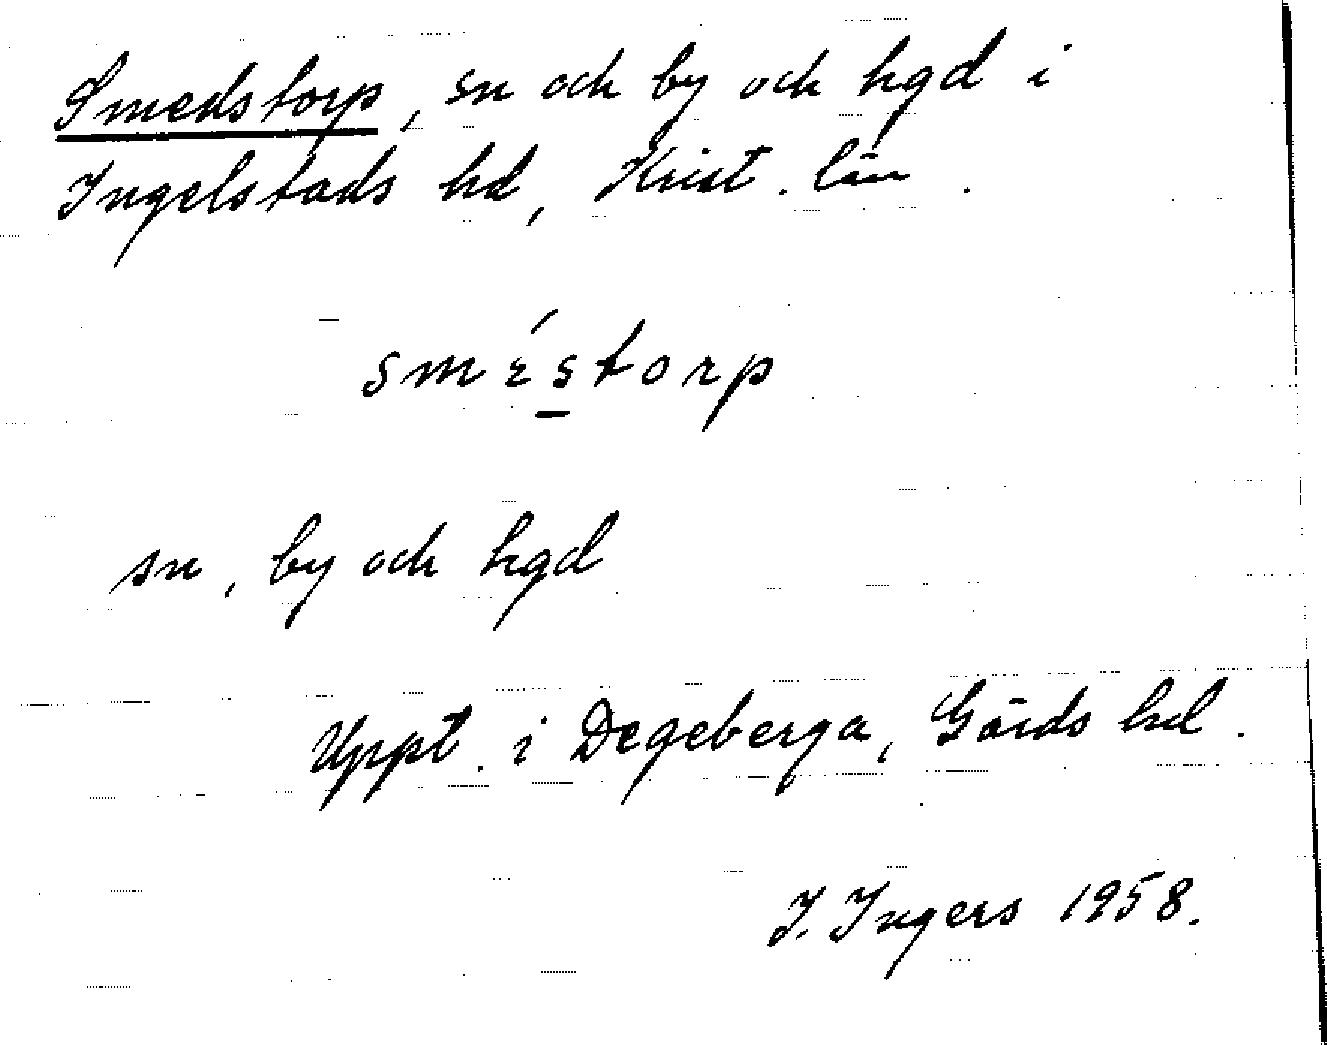 Smedstorp, sn och by och hgd i
Ingelstads hd, Krist. län.
smɛ́storp
sn, by och hgd
Uppt. i Degeberga, Gärds hd.
I. Ingers 1958.